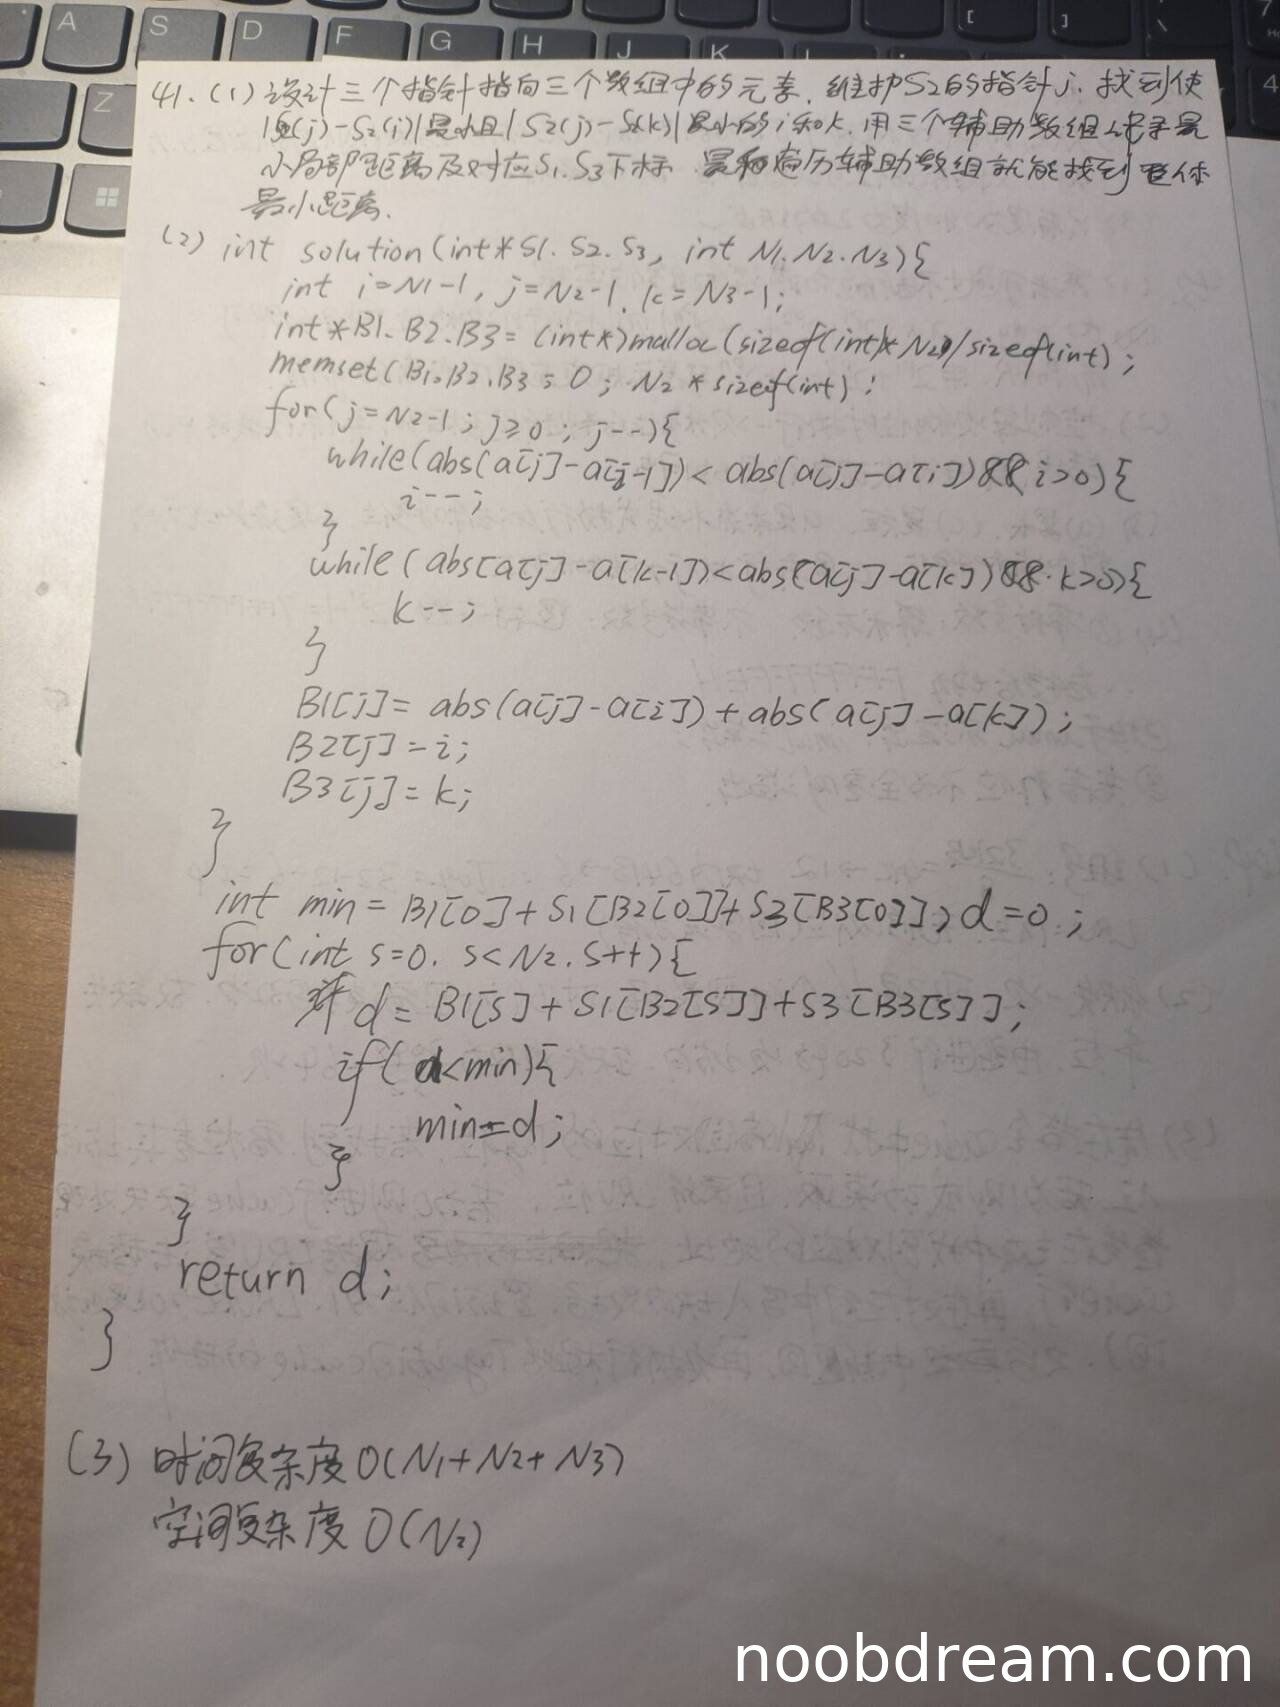 41.(1) 设计三个指针指向三个数组中的元素.维护S2的指针j.找到使
|S1(j)-S2(i)|最小且|S2(j)-S3(k)|最小的i和k.用三个辅助数组 最
小局部距离及对应S1.S3下标 最后遍历辅助数组就能找到整体
最小距离.
(2) int solution(int*S1.S2.S3, int N1.N2.N3){
int i=N1-1, j=N2-1. k=N3-1;
int*B1.B2.B3=(int*)malloc(sizeof(int)*N2)/sizeof(int);
memset(B1.B2.B3; 0; N2*sizeof(int);
for(j=N2-1; j≥0; j--){
while(abs(a[j]-a[i-1])<abs(a[j]-a[i])&&i>0){
i--;
}
while(abs[a[j]-a[k-1])<abs(a[j]-a[k])&&k>0){
k--;
}
B1[j]=abs(a[j]-a[i])+abs(a[j]-a[k]);
B2[j]=i;
B3[j]=k;
}
int min=B1[0]+S1[B2[0]]+S3[B3[0]], d=0;
for(int s=0. s<N2. s++){
d=B1[s]+S1[B2[s]]+S3[B3[s]];
if(d<min){
min=d;
}
}
return d;
}
(3) 时间复杂度O(N1+N2+N3)
空间复杂度O(N2)
A S D F G H J K L
Z
[ ] \ 7
4
noobdream.com